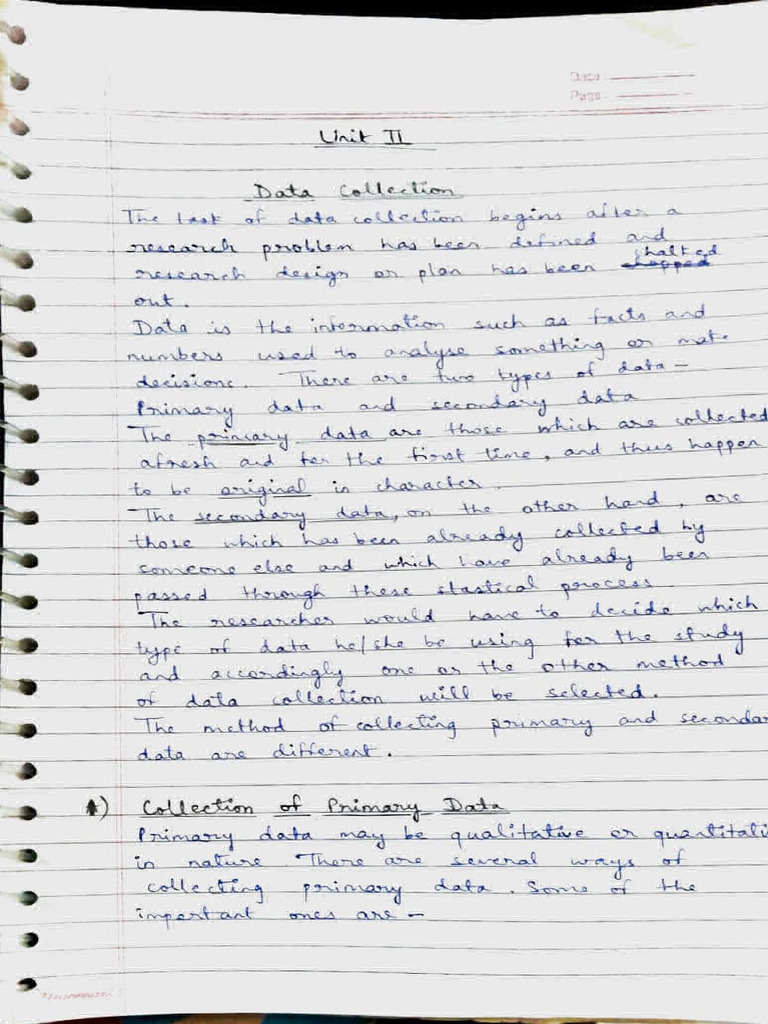 Date :
Page :
Unit II
Data Collection
The task of data collection begins after a
research problem has been defined and
research design or plan has been chalted
out.
Data is the information such as facts and
numbers used to analyse something or make
decisions. There are two types of data -
Primary data and secondary data
The primary data are those which are collected
afresh and for the first time, and thus happen
to be original in character.
The secondary data, on the other hand, are
those which has been already collected by
someone else and which have already been
passed through these stastical process.
The researcher would have to decide which
type of data he/she be using for the study
and accordingly one or the other method
of data collection will be selected.
The method of collecting primary and seconda
data are different.
A) Collection of Primary Data
Primary data may be qualitative or quantitati
in nature. There are several ways of
collecting primary data. Some of the
important ones are -